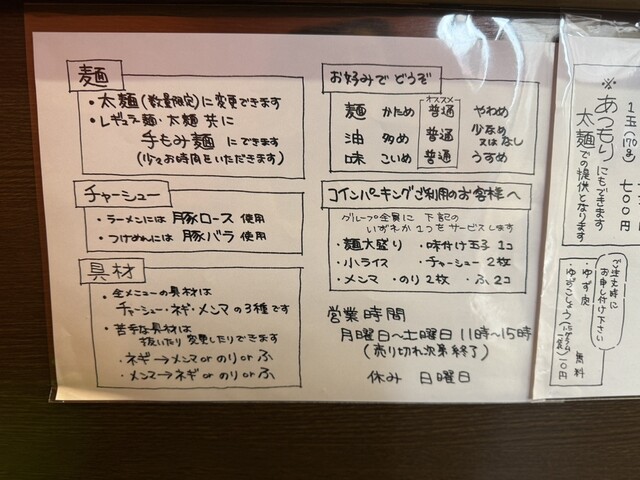 麺
・太麺(数量限定)に変更できます
・レギュラー麺・太麺 共に
手もみ麺 にできます
(少々お時間をいただきます)
チャーシュー
・ラーメンには 豚ロース 使用
・つけめんには 豚バラ 使用
具材
・全メニューの具材は
チャーシュー・ネギ・メンマ の3種です
・苦手な具材は
抜いたり 変更したりできます
・ネギ→メンマ or のり or ふ
・メンマ→ネギ or のり or ふ
お好みで どうぞ
オススメ
麺 かため 普通 やわめ
油 多め 普通 少なめ 又は なし
味 こいめ 普通 うすめ
コインパーキングご利用のお客様へ
グループ全員に 下記の
いずれか1つをサービスします
・麺大盛り ・味付け玉子 1コ
・小ライス ・チャーシュー 2枚
・メンマ ・のり 2枚 ・ふ 2コ
営業時間
月曜日〜土曜日 11時〜15時
(売り切れ次第終了)
休み 日曜日
1玉(170g) 七〇〇
※あつもりにもできます
太麺での提供となります
ご注文時に
お申し付け下さい
・ゆず皮 無料
・ゆずこしょう 10円